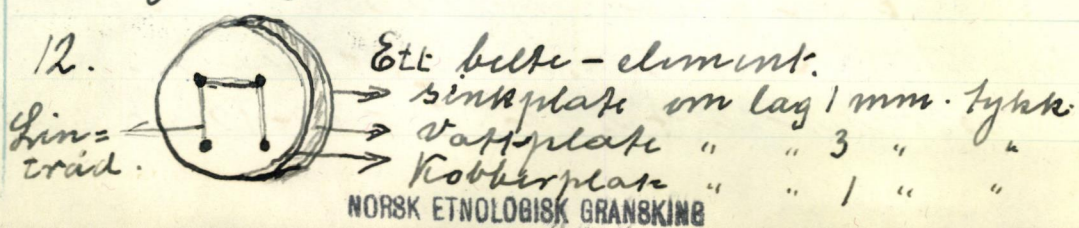 12.
Ett belte-element.
Sinkplate om lag 1 mm. tykk.
Vattplate " " 3 " "
Kobberplate " " 1 " "
Lin=
tråd.
NORSK ETNOLOGISK GRANSKING